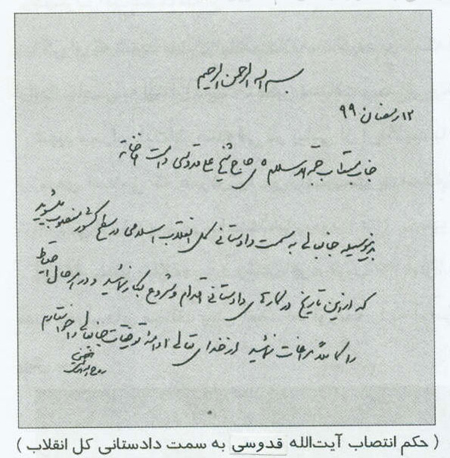 بسم الله الرحمن الرحیم
۱۲ رمضان ۹۹
جناب مستطاب حجة الاسلام آقای حاج شیخ علی قدوسی دامت افاضاته
بدینوسیله جنابعالی به سمت دادستانی کل انقلاب اسلامی در سطح کشور منصوب میشوید
که از این تاریخ در کارهای دادستانی اقدام و شروع بکار نمائید و در هر حال احتیاط
را کاملاً مراعات نمائید از خدای تعالی ادامه توفیقات جنابعالی را خواستارم
روح الله الموسوی الخمینی
( حکم انتصاب آیت‌الله قدوسی به سمت دادستانی کل انقلاب )